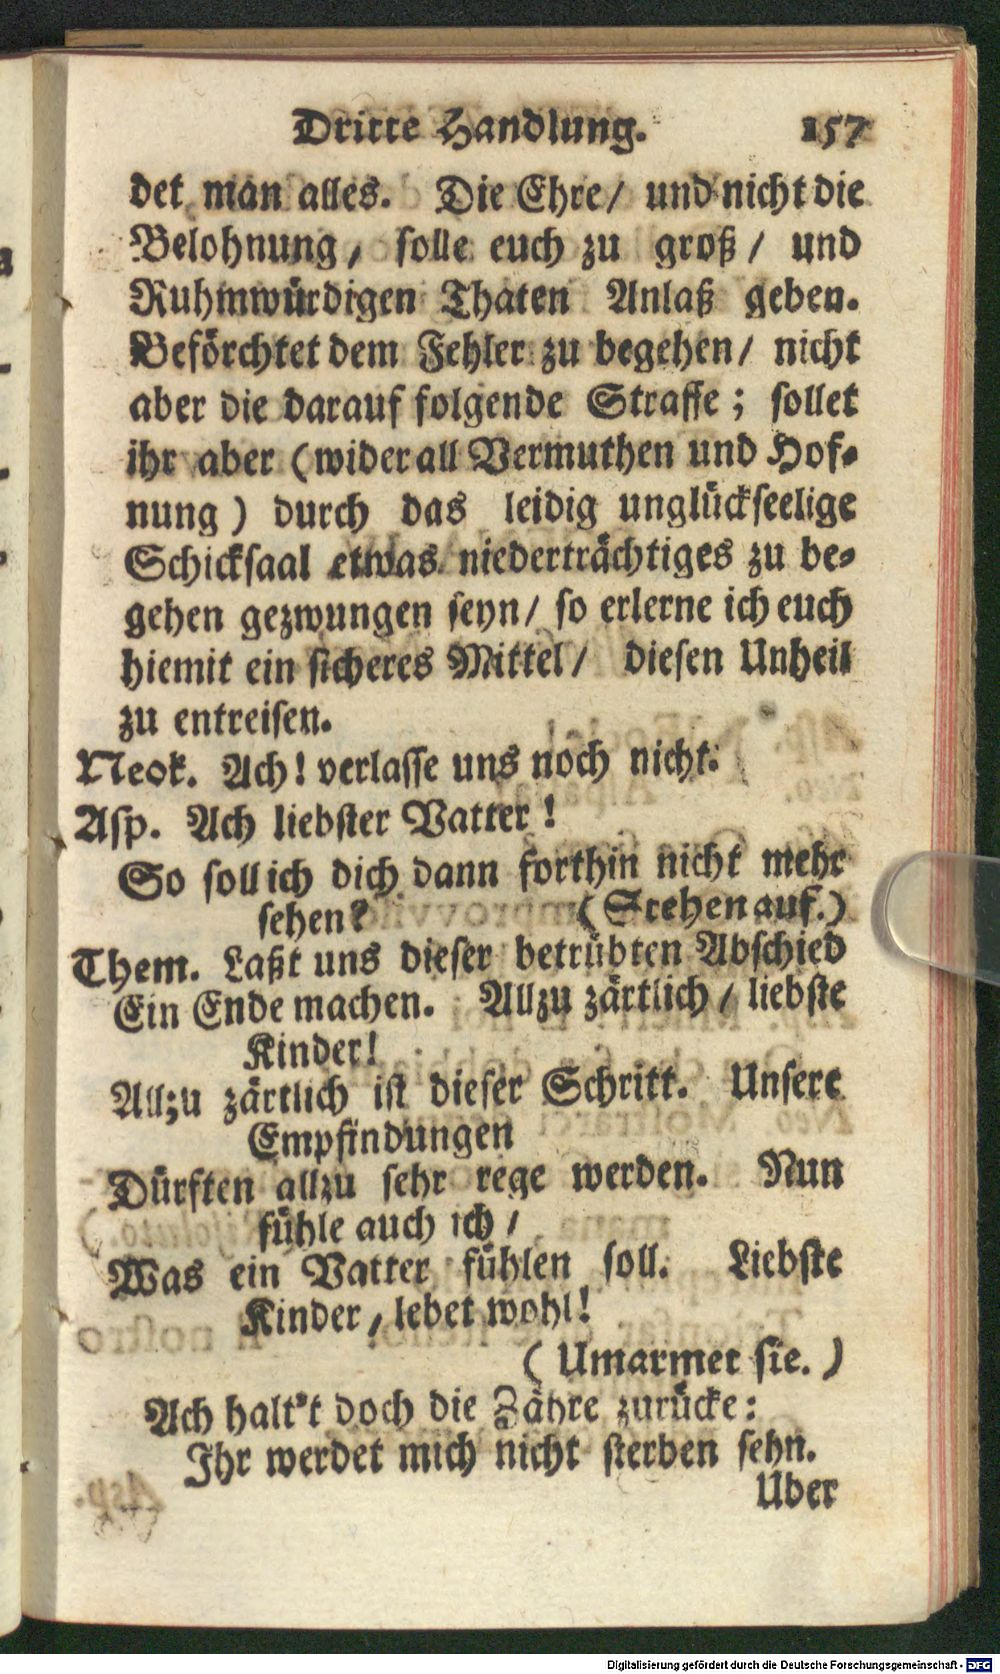 Dritte Handlung. 157
det man alles. Die Ehre/ und nicht die
Belohnung, solle euch zu groß/ und
Ruhmwürdigen Thaten Anlaß geben.
Beförchtet dem Fehler zu begehen/ nicht
aber die darauf folgende Straffe; sollet
ihr aber (wider all Vermuthen und Hof-
nung) durch das leidig unglückseelige
Schicksaal etwas niederträchtiges zu be-
gehen gezwungen seyn/ so erlerne ich euch
hiemit ein sicheres Mittel/ diesen Unheil
zu entreisen.
Neok. Ach! verlasse uns noch nicht:
Asp. Ach liebster Vatter!
So soll ich dich dann forthin nicht mehr
sehen? (Stehen auf.)
Them. Laßt uns dieser betrübten Abschied
Ein Ende machen. Allzu zärtlich/ liebste
Kinder!
Allzu zärtlich ist dieser Schritt. Unsere
Empfindungen
Dürften allzu sehr rege werden. Nun
fühle auch ich/
Was ein Vatter fühlen soll. Liebste
Kinder, lebet wohl!
(Umarmet sie.)
Ach halt't doch die Zähre zurücke:
Ihr werdet mich nicht sterben sehn.
Uber
Digitalisierung gefördert durch die Deutsche Forschungsgemeinschaft - DFG